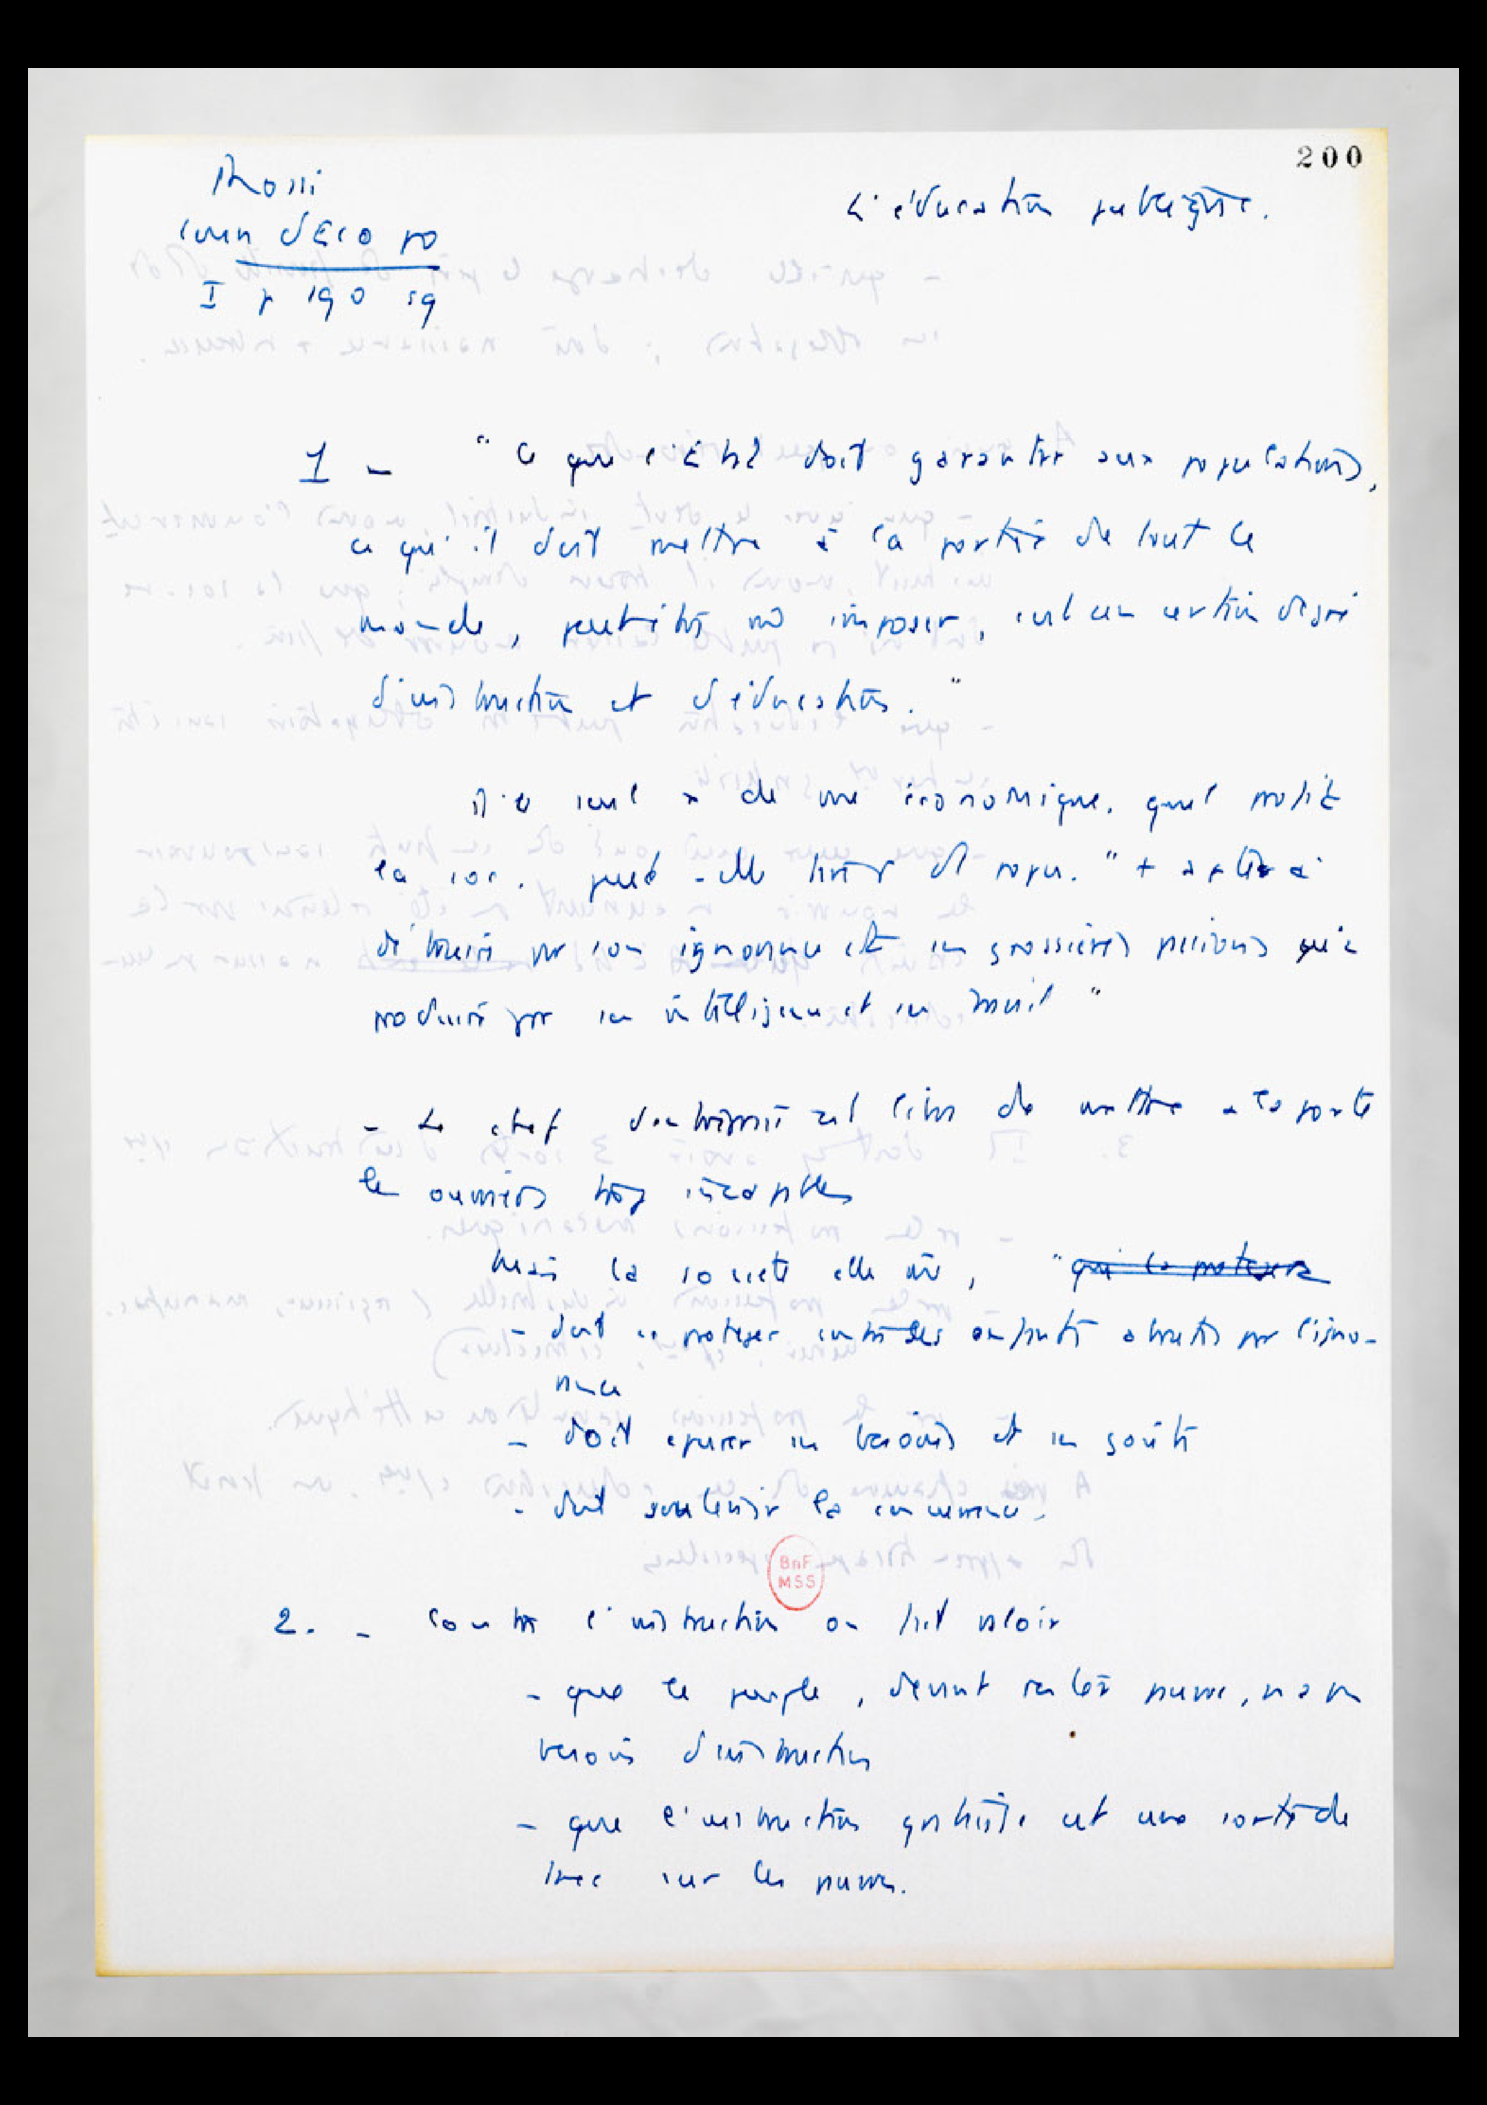 200
Rossi
cours d'Eco po
I p 190 sq
L'éducation publique.
1 – " Ce que l'Etat doit garantir aux populations,
ce qu'il doit mettre à la portée de tout le
monde, peut-être mê imposer, c'est un certain degré
d'instruction et d'éducation. "
de vue économique. quel profit
la soc. peut-elle tirer d' popu. " + apte à
détruire par son ignorance et ses grossières passions qu'à
produire par son intelligence et son travail "
- Le chef d'entreprise est libre de mettre à la porte
les ouvriers trop incapables
Mais la société elle mê, " qui la protegera
- doit se protéger contre les enfants abrutis par l'igno-
rance
- doit épurer les besoins et les goûts
- doit soutenir la concurrence.
BnF
MSS
2. - Contre l'instruction on fait valoir
- que le peuple, devant rester pauvre, n'a pas
besoin d'instruction
- que l'instruction gratuite est une sorte de
taxe sur les pauvres.